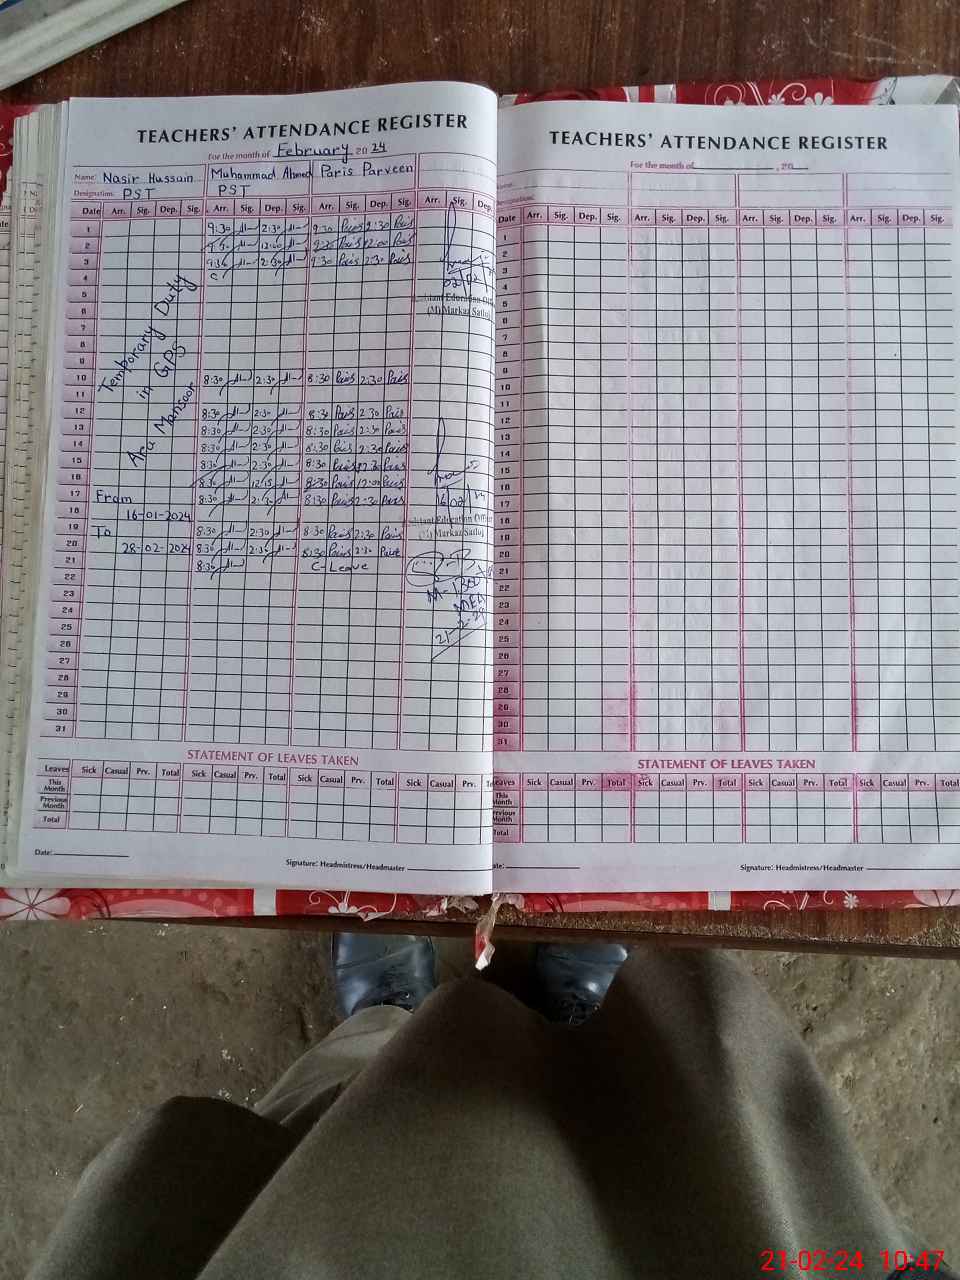 TEACHERS' ATTENDANCE REGISTER
For the month of February 2024
Name: Nasir Hussain Muhammad Ahmed Paris Parveen
Designation: PST PST
Date Arr. Sig. Dep. Sig. Arr. Sig. Dep. Sig. Arr. Sig. Dep. Sig. Arr. Sig. Dep.
1 9:30 2:30 9:30 Paris 2:30 Paris
2 12:00 Paris 12:00 Paris
3 2:30 9:30 Paris 2:30 Paris
4
5
6
7
8
9
10 8:30 2:30 8:30 Paris 2:30 Paris
11
12 8:30 2:30 8:30 Paris 2:30 Paris
13 8:30 2:30 8:30 Paris 2:30 Paris
14 8:30 2:30 8:30 Paris 2:30 Paris
15 8:30 2:30 8:30 Paris 2:30 Paris
16 8:30 12:15 8:30 Paris 12:00 Paris
17 From 8:30 8:30 Paris 2:30 Paris
18 16-01-2024
19 To 8:30 2:30 8:30 Paris 2:30 Paris
20 28-02-2024 8:30 2:30 8:30 Paris 2:30 Paris
21 8:30 C-Leave
22
23
24
25
26
27
28
29
30
31
Temporary Duty
in GPS
Mansoor
02/02
Assistant Education Offi
(M) Markaz Satluj
16/02/24
sistant Education Office
Markaz Satluj
MEA
21-2-24
STATEMENT OF LEAVES TAKEN
Leaves Sick Casual Prv. Total Sick Casual Prv. Total Sick Casual Prv. Total Sick Casual Prv.
This Month
Previous Month
Total
Date:
Signature: Headmistress/Headmaster
TEACHERS' ATTENDANCE REGISTER
For the month of , 20
Date Arr. Sig. Dep. Sig. Arr. Sig. Dep. Sig. Arr. Sig. Dep. Sig. Arr. Sig. Dep. Sig.
1
2
3
4
5
6
7
8
9
10
11
12
13
14
15
16
17
18
19
20
21
22
23
24
25
26
27
28
29
30
31
STATEMENT OF LEAVES TAKEN
Leaves Sick Casual Prv. Total Sick Casual Prv. Total Sick Casual Prv. Total Sick Casual Prv. Total
This Month
Previous Month
Total
Signature: Headmistress/Headmaster
21-02-24 10:47